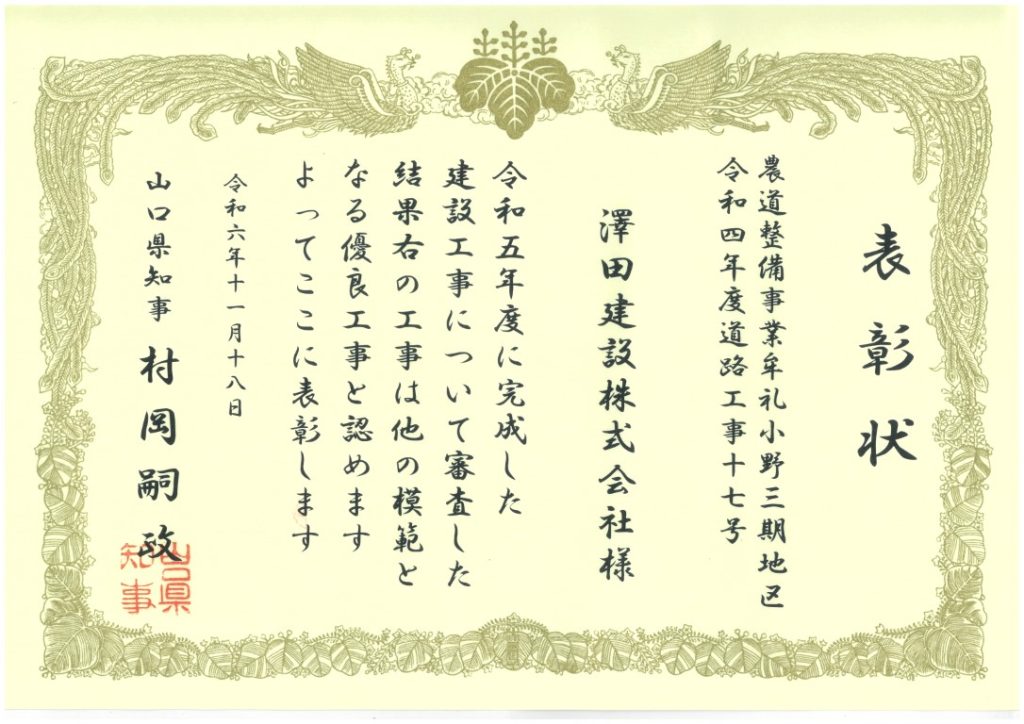 表彰状
農道整備事業牟礼小野三期地区
令和四年度道路工事十七号
澤田建設株式会社様
令和五年度に完成した
建設工事について審査した
結果右の工事は他の模範と
なる優良工事と認めます
よってここに表彰します
令和六年十一月十八日
山口県知事 村岡嗣政
山口県
知事